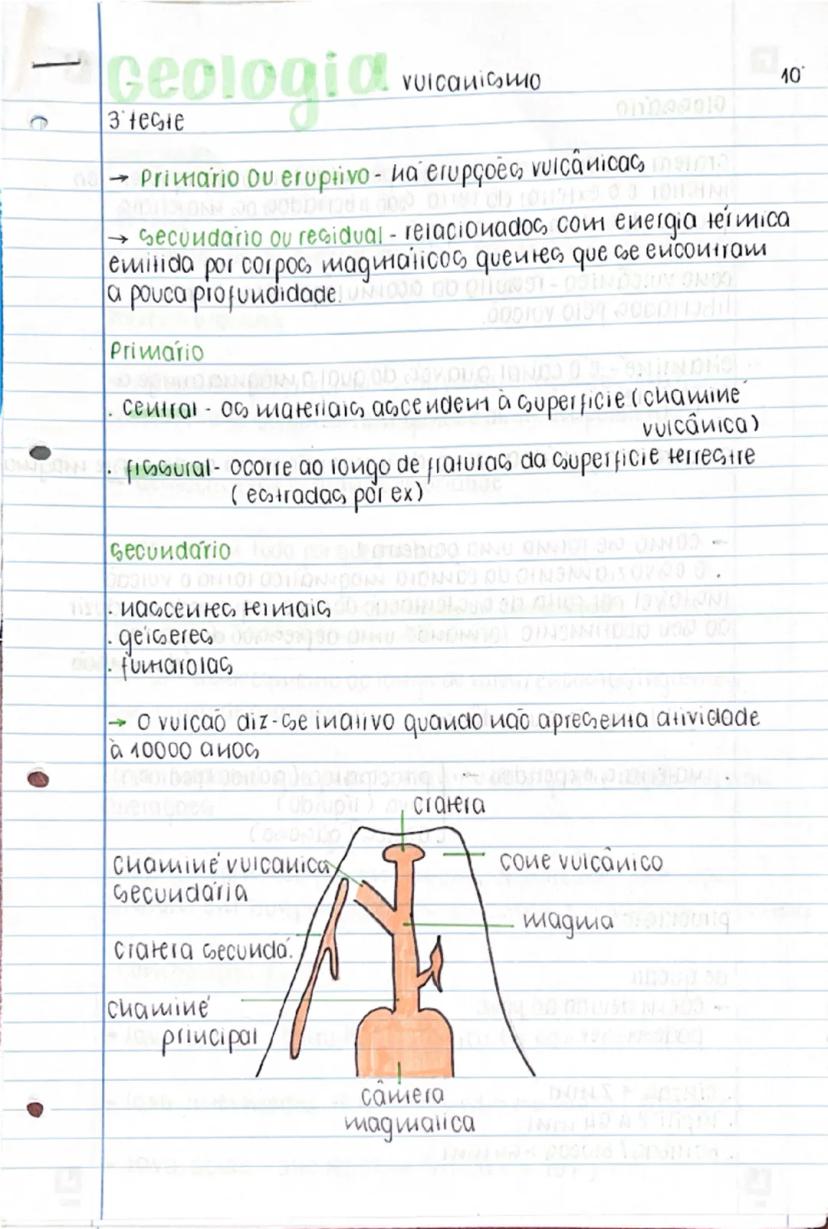 Geologia vulcanismo 10º
3º teste
→ Primário ou eruptivo - há erupções vulcânicas
→ Secundário ou residual - relacionados com energia térmica
emitida por corpos magmáticos quentes que se encontram
a pouca profundidade.
Primário
. central - os materiais ascendem à superfície (chaminé
vulcânica)
. fissural - ocorre ao longo de fraturas da superfície terrestre
(estradas por ex)
Secundário
. nascentes termais
. geíseres
. fumarolas
→ O vulcão diz-se inativo quando não apresenta atividade
à 10000 anos
cratera
chaminé vulcanica
secundária
cone vulcânico
magma
cratera secundá.
chaminé
principal
câmera
magmatica